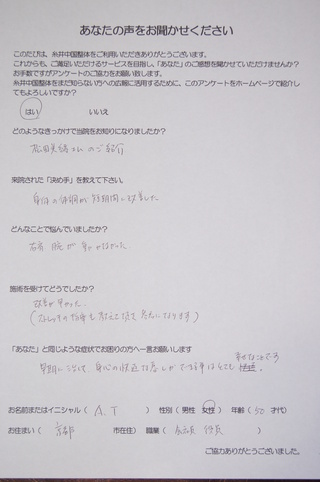 あなたの声をお聞かせください
このたびは、糸井中国整体をご利用いただきありがとうございます。
これからも、ご満足いただけるサービスを目指し、「あなた」のご感想を聞かせていただけませんか?
お手数ですがアンケートのご協力をお願い致します。
糸井中国整体をまだ知らない方への広報に活用するために、このアンケートをホームページで紹介し
てもよろしいですか?
はい いいえ
どのようなきっかけで当院をお知りになりましたか?
のご紹介
来院された「決め手」を教えて下さい。
身体の体調が短期間に改善した
どんなことで悩んでいましたか?
右肩 腕が
施術を受けてどうでしたか?
改善が早かった
(ストレッチの指導も教えて頂て
「あなた」と同じような症状でお困りの方へ一言お願いします
幸せなことです
早期に
お名前またはイニシャル ( A.T ) 性別 (男性 女性) 年齢 (50 才代)
お住まい ( 京都 市在住) 職業 ( 役員 )
ご協力ありがとうございました。